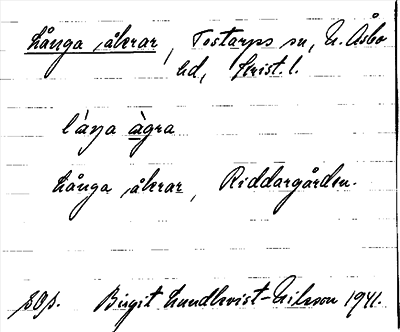 Långa åkrar, Tostarps sn, N. Åsbo
hd, Krist. l.
làŋa àgra
Långa åkrar, Riddargården.
sOp. Birgit Lundkvist-Nilsson 1941.